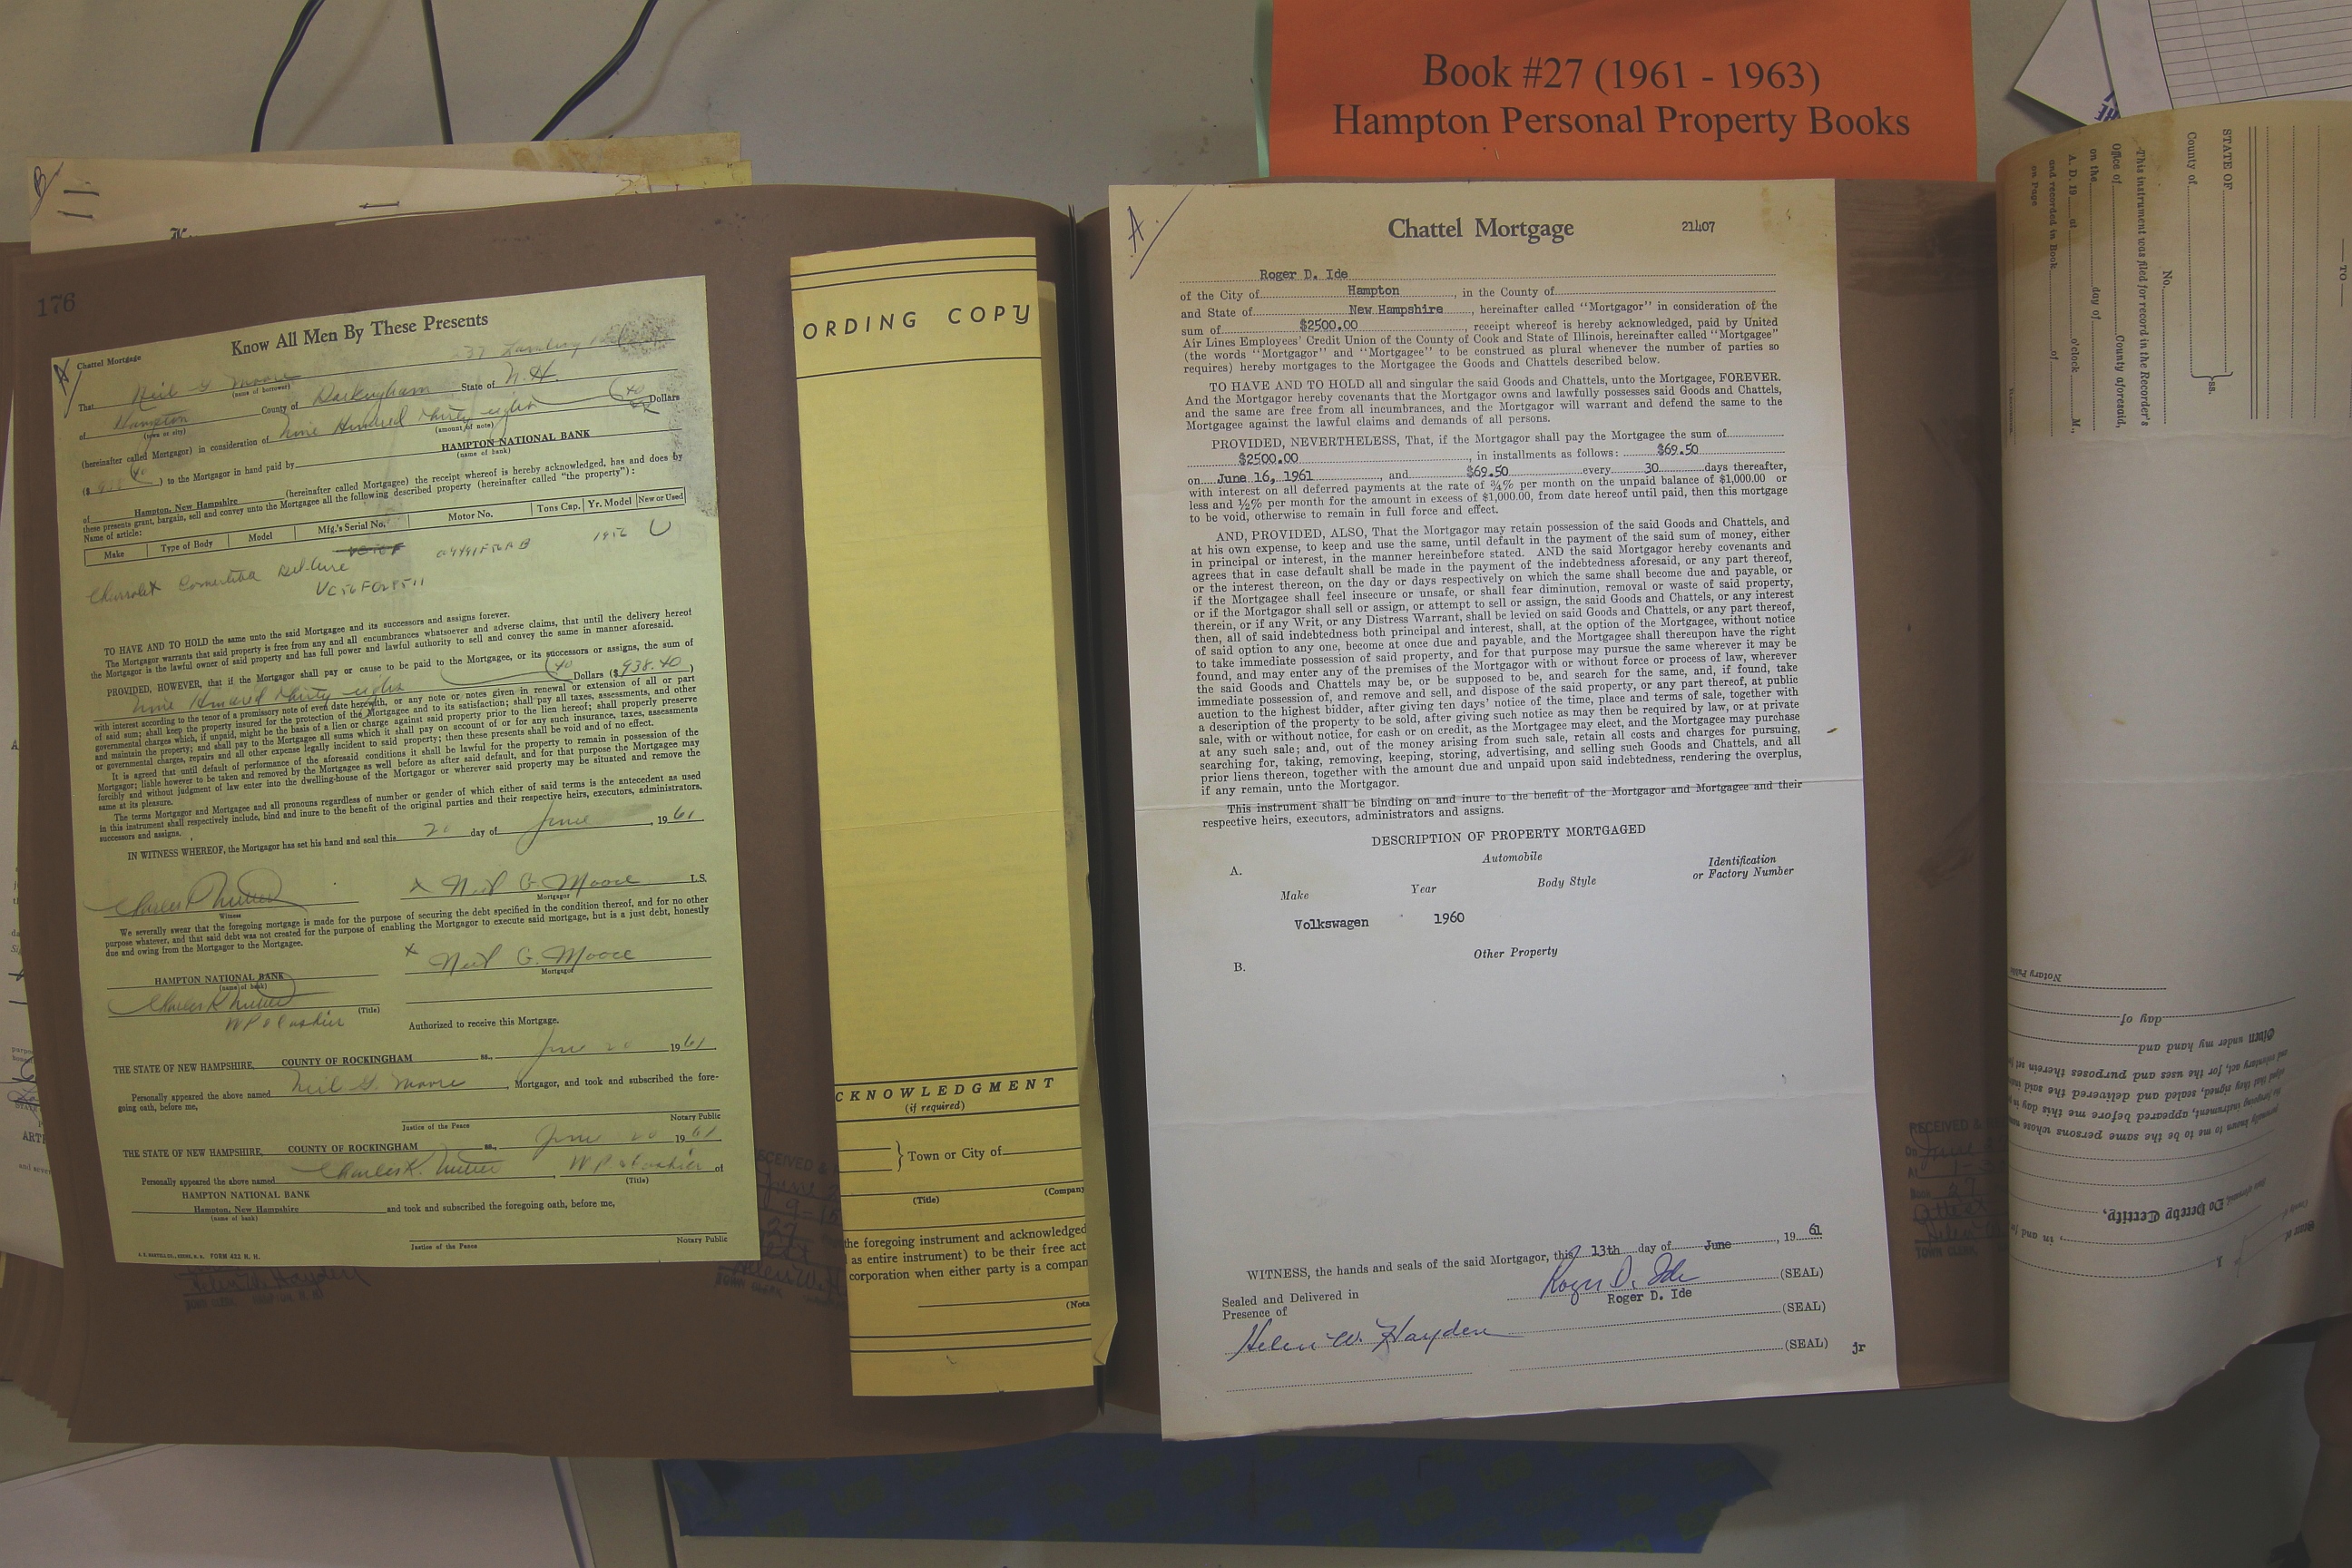 Book #27 (1961 - 1963)
Hampton Personal Property Books
176
Chattel Mortgage
Know All Men By These Presents
That Neil G. Moore
(name of borrower)
of Hampton County of Rockingham State of N.H.
(town or city)
(hereinafter called Mortgagor) in consideration of Nine Hundred thirty eight 40/xx Dollars
(amount of note)
($ ) to the Mortgagor in hand paid by HAMPTON NATIONAL BANK
(name of bank)
of Hampton, New Hampshire (hereinafter called Mortgagee) the receipt whereof is hereby acknowledged, has and does by
these presents grant, bargain, sell and convey unto the Mortgagee all the following described property (hereinafter called "the property"):
Name of article:
Make Type of Body Model Mfg.'s Serial No. Motor No. Tons Cap. Yr. Model New or Used
Chevrolet 1956 U
TO HAVE AND TO HOLD the same unto the said Mortgagee and its successors and assigns forever.
The Mortgagor warrants that said property is free from any and all encumbrances whatsoever and adverse claims, that until the delivery hereof
the Mortgagor is the lawful owner of said property and has full power and lawful authority to sell and convey the same in manner aforesaid.
PROVIDED, HOWEVER, that if the Mortgagor shall pay or cause to be paid to the Mortgagee, or its successors or assigns, the sum of
Nine Hundred thirty eight 40 Dollars ($938.40)
with interest according to the tenor of a promissory note of even date herewith, or any note or notes given in renewal or extension of all or part
of said sum; shall keep the property insured for the protection of the Mortgagee and to its satisfaction; shall pay all taxes, assessments, and other
governmental charges which, if unpaid, might be the basis of a lien or charge against said property prior to the lien hereof; shall properly preserve
and maintain the property; and shall pay to the Mortgagee all sums which it shall pay on account of or for any such insurance, taxes, assessments
or governmental charges, repairs and all other expense legally incident to said property; then these presents shall be void and of no effect.
It is agreed that until default of performance of the aforesaid conditions it shall be lawful for the property to remain in possession of the
Mortgagor; liable however to be taken and removed by the Mortgagee as well before as after said default, and for that purpose the Mortgagee may
forcibly and without judgment of law enter into the dwelling-house of the Mortgagor or wherever said property may be situated and remove the
same at its pleasure.
The terms Mortgagor and Mortgagee and all pronouns regardless of number or gender of which either of said terms is the antecedent as used
in this instrument shall respectively include, bind and inure to the benefit of the original parties and their respective heirs, executors, administrators,
successors and assigns.
IN WITNESS WHEREOF, the Mortgagor has set his hand and seal this 20 day of June, 1961
x Neil G. Moore L.S.
Witness Mortgagor
We severally swear that the foregoing mortgage is made for the purpose of securing the debt specified in the condition thereof, and for no other
purpose whatever, and that said debt was not created for the purpose of enabling the Mortgagor to execute said mortgage, but is a just debt, honestly
due and owing from the Mortgagor to the Mortgagee.
x Neil G. Moore
Mortgagor
HAMPTON NATIONAL BANK
(name of bank)
(Title)
Authorized to receive this Mortgage.
THE STATE OF NEW HAMPSHIRE, COUNTY OF ROCKINGHAM ss., June 20 1961
Personally appeared the above named Neil G. Moore, Mortgagor, and took and subscribed the fore-
going oath, before me,
Justice of the Peace Notary Public
THE STATE OF NEW HAMPSHIRE, COUNTY OF ROCKINGHAM ss., June 20 1961
Personally appeared the above named Charles K. of
(Title)
HAMPTON NATIONAL BANK
Hampton, New Hampshire and took and subscribed the foregoing oath, before me,
(name of bank)
Justice of the Peace Notary Public
FORM 422 N. H.
Helen W. Hayden
ORDING COPY
CKNOWLEDGMENT
(if required)
Town or City of
(Title) (Company
the foregoing instrument and acknowledged
as entire instrument) to be their free act
corporation when either party is a compan
(Nota
A.
Chattel Mortgage 21407
Roger D. Ide
of the City of Hampton, in the County of
and State of New Hampshire, hereinafter called "Mortgagor" in consideration of the
sum of $2500.00, receipt whereof is hereby acknowledged, paid by United
Air Lines Employees' Credit Union of the County of Cook and State of Illinois, hereinafter called "Mortgagee"
(the words "Mortgagor" and "Mortgagee" to be construed as plural whenever the number of parties so
requires) hereby mortgages to the Mortgagee the Goods and Chattels described below.
TO HAVE AND TO HOLD all and singular the said Goods and Chattels, unto the Mortgagee, FOREVER.
And the Mortgagor hereby covenants that the Mortgagor owns and lawfully possesses said Goods and Chattels,
and the same are free from all incumbrances, and the Mortgagor will warrant and defend the same to the
Mortgagee against the lawful claims and demands of all persons.
PROVIDED, NEVERTHELESS, That, if the Mortgagor shall pay the Mortgagee the sum of
$2500.00, in installments as follows: $69.50
on June 16, 1961, and $69.50 every 30 days thereafter,
with interest on all deferred payments at the rate of ¾% per month on the unpaid balance of $1,000.00 or
less and ½% per month for the amount in excess of $1,000.00, from date hereof until paid, then this mortgage
to be void, otherwise to remain in full force and effect.
AND, PROVIDED, ALSO, That the Mortgagor may retain possession of the said Goods and Chattels, and
at his own expense, to keep and use the same, until default in the payment of the said sum of money, either
in principal or interest, in the manner hereinbefore stated. AND the said Mortgagor hereby covenants and
agrees that in case default shall be made in the payment of the indebtedness aforesaid, or any part thereof,
or the interest thereon, on the day or days respectively on which the same shall become due and payable, or
if the Mortgagee shall feel insecure or unsafe, or shall fear diminution, removal or waste of said property,
or if the Mortgagor shall sell or assign, or attempt to sell or assign, the said Goods and Chattels, or any interest
therein, or if any Writ, or any Distress Warrant, shall be levied on said Goods and Chattels, or any part thereof,
then, all of said indebtedness both principal and interest, shall, at the option of the Mortgagee, without notice
of said option to any one, become at once due and payable, and the Mortgagee shall thereupon have the right
to take immediate possession of said property, and for that purpose may pursue the same wherever it may be
found, and may enter any of the premises of the Mortgagor with or without force or process of law, wherever
the said Goods and Chattels may be, or be supposed to be, and search for the same, and, if found, take
immediate possession of, and remove and sell, and dispose of the said property, or any part thereof, at public
auction to the highest bidder, after giving ten days' notice of the time, place and terms of sale, together with
a description of the property to be sold, after giving such notice as may then be required by law, or at private
sale, with or without notice, for cash or on credit, as the Mortgagee may elect, and the Mortgagee may purchase
at any such sale; and, out of the money arising from such sale, retain all costs and charges for pursuing,
searching for, taking, removing, keeping, storing, advertising, and selling such Goods and Chattels, and all
prior liens thereon, together with the amount due and unpaid upon said indebtedness, rendering the overplus,
if any remain, unto the Mortgagor.
This instrument shall be binding on and inure to the benefit of the Mortgagor and Mortgagee and their
respective heirs, executors, administrators and assigns.
DESCRIPTION OF PROPERTY MORTGAGED
A. Automobile
Make Year Body Style Identification
or Factory Number
Volkswagen 1960
Other Property
B.
WITNESS, the hands and seals of the said Mortgagor, this 13th day of June, 19 61
Sealed and Delivered in
Presence of
Roger D. Ide (SEAL)
Roger D. Ide
Helen W. Hayden (SEAL)
(SEAL) jr
STATE OF
County of ss.
No.
This instrument was filed for record in the Recorder's
Office of County aforesaid,
on the day of
A. D. 19 at o'clock M.,
and recorded in Book of
on Page
TO
Do Hereby Certify,
Given under my hand and
day of
Notary Public